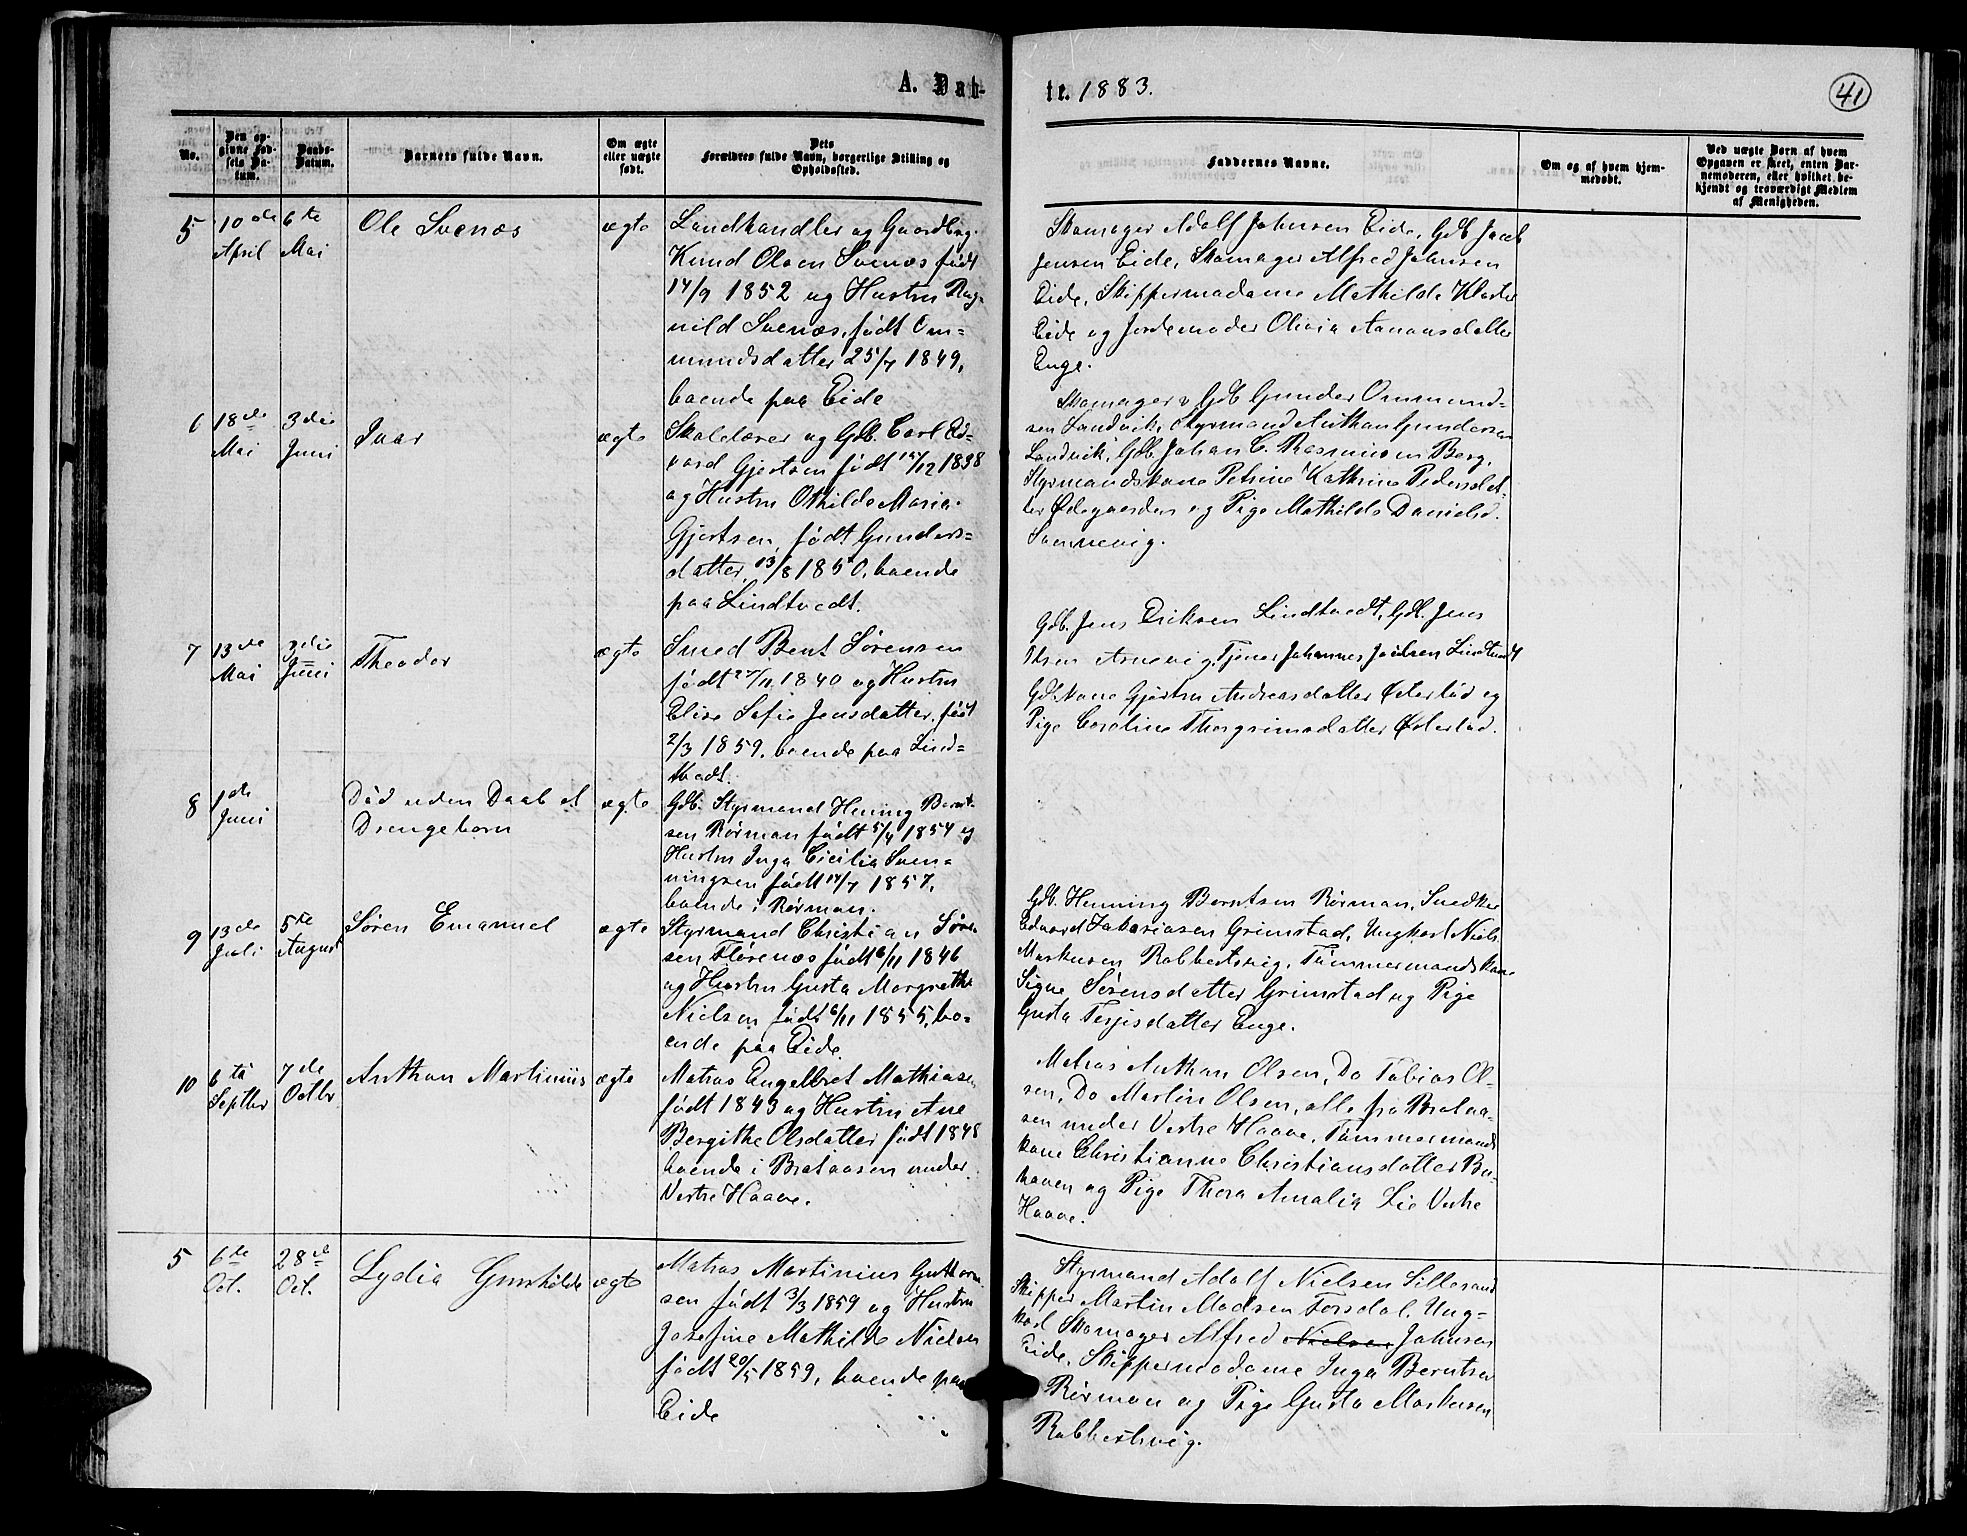 A. Daab-
te. 1883.
41
No.
Den op-
givne Fød-
sels Da-
tum.
Daabs-
Datum.
Barnets fulde Navn.
Om ægte
eller uægte
født.
Dets
Forældres fulde Navn, borgerlige Stilling og
Opholdssted.
Faddernes Navne.
Om og af hvem hjem-
medøbt.
Ved uægte Børn af hvem
Opgaven er skeet, enten Bar-
nemoderen, eller hvilket be-
kjendt og troværdigt Medlem
af Menigheden.
5
10de
April
6te
Mai
Ole Svenæs
ægte
Landhandler og Gaardbrg.
Knud Olsen Svenæs født
17/9 1852 og Hustru Rag-
nild Svenæs, født Om-
mundsdatter 25/7 1849,
boende paa Eide
Skomager Adolf Johnsen Eide, Gdb Jacob
Jensen Eide, Skomager Alfred Johnsen
Eide, Skippermadame Mathilde Kloster
Eide og Jordemoder Olivia Aanonsdatter
Enge.
6
18de
Mai
3die
Juni
Ivar
ægte
Skolelærer og Gdb. Carl Ed-
vard Gjertsen født /12 1838
og Hustru Othilde Maria
Gjertsen, født Gunders-
datter 13/8 1850, boende
paa Lindtvedt.
Skomager & Gdb Gunder Ommund-
sen Landvik, Styrmand Anthon Gundersen
Landvik, Gdb. Johan C. Rasmussen Berg,
Styrmandskone Petrine Kathrine Pedersdat-
ter Ødegaarden og Pige Mathilde Danielsd.
Sømmevig.
7
13de
Mai
3die
Juni
Theodor
ægte
Smed Bent Sørensen
født 27/11 1840 og Hustru
Elise Sofie Jensdatter, født
2/3 1859, boende paa Lind-
tvedt.
Gdb. Jens Eriksen Lindtvedt, Gdb. Jens
Olsen Arnevig, Tjener Johannes Jacobsen Lindtvedt
Gdb.kone Gjertru Andreasdatter Østerlød og
Pige Caroline Thorgrimsdatter Østerlød.
8
1de
Juni
Død uden Daab et
Drengebarn
ægte
Gdb. Styrmand Henning Bernt-
sen Rørman født 5/4 1854 og
Hustru Inga Cicilia Sven-
ningsen født 14/7 1857,
boende i Rørman.
9
13de
Juli
5te
August
Søren Emanuel
ægte
Styrmand Christian Søren-
sen Flørenæs født 6/11 1846
og Hustru Gusta Margrethe
Nielsen født 6/11 1855, bo-
ende paa Eide.
Gdb. Henning Berntsen Rørman, Snedker
Edvard Zakariasen Grimstad, Ungkarl Niels
Markusen Rabbertsvig, Tømmermandskone
Signe Sørensdatter Grimstad og Pige
Gusta Terjesdatter Enge.
10
6te
Septbr
7de
Octbr
Anthon Martinius
ægte
Matros Engelbret Mathiasen
født 1843 og Hustru Ane
Bergithe Olsdatter født 1848
boende i Brataasen under
Vestre Haave.
Matros Anthon Olsen, Do Tobias Ol-
sen, Do Martin Olsen, alle fra Brataa-
sen under Vestre Haave, Tømmermands
kone Christianne Christiansdatter Bu-
haven og Pige Thora Amalia Lie Vestre
Haave.
5
6te
Oct.
28de
Oct.
Lydia Gunhilde
ægte
Matros Martinius Guttorm-
sen født 3/3 1859 og Hustru
Josefine Mathilde Nielsen
født 20/5 1859, boende paa
Eide
Styrmand Adolf Nielsen Lillesand
Skipper Martin Madsen Forsdal, Ung-
karl Skomager Alfred Nielsen Johnsen
Eide, Skippermadame Inga Berntsen
Rørman og Pige Gusta Markusen
Rabbestvig.